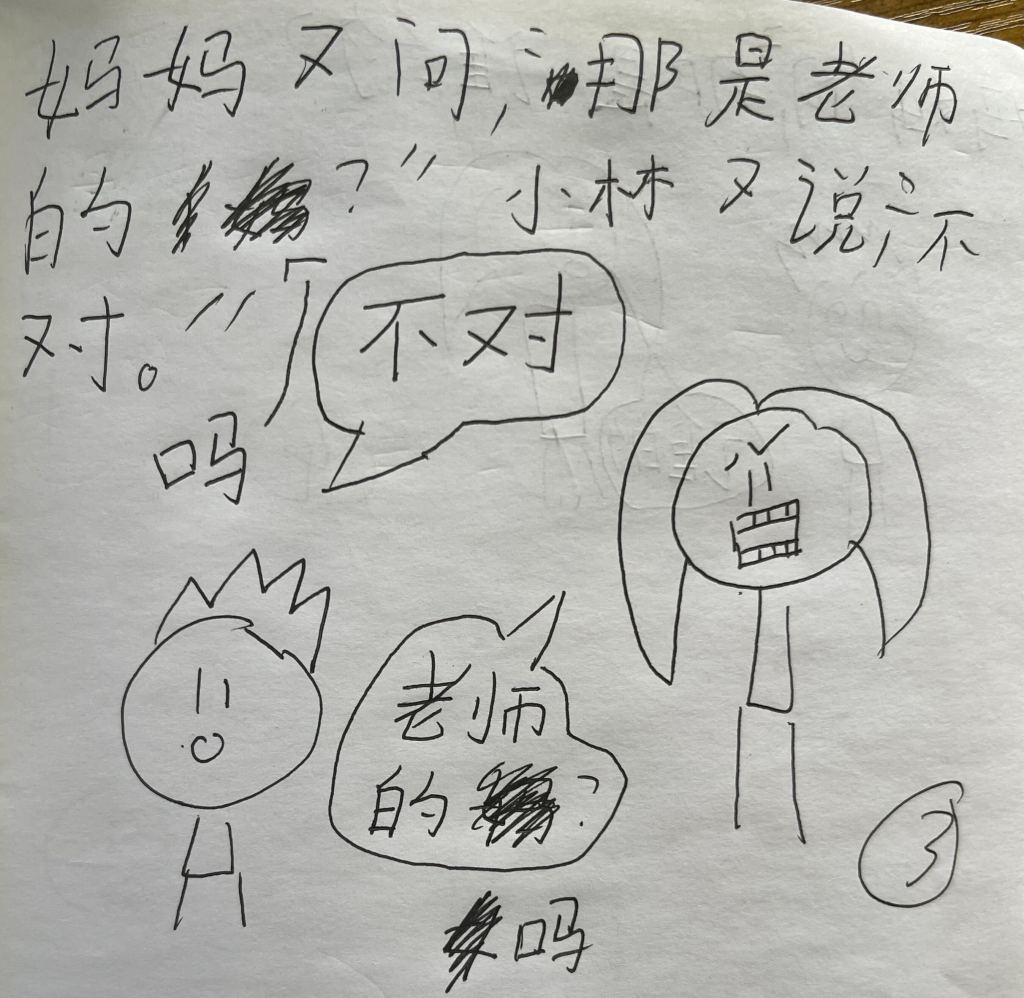 妈妈又问，“那是老师
的？”小林又说，“不
对。”
吗
不对
老师
的？
吗
3